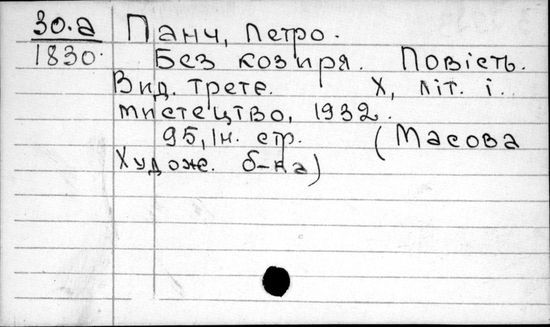 30.а
1830.
Панч, Петро.
Без козиря. Повість.
Вид. трете. Х, літ. і
мистецтво, 1932.
95, Iн. стр. (Масова
Художе. б-ка)